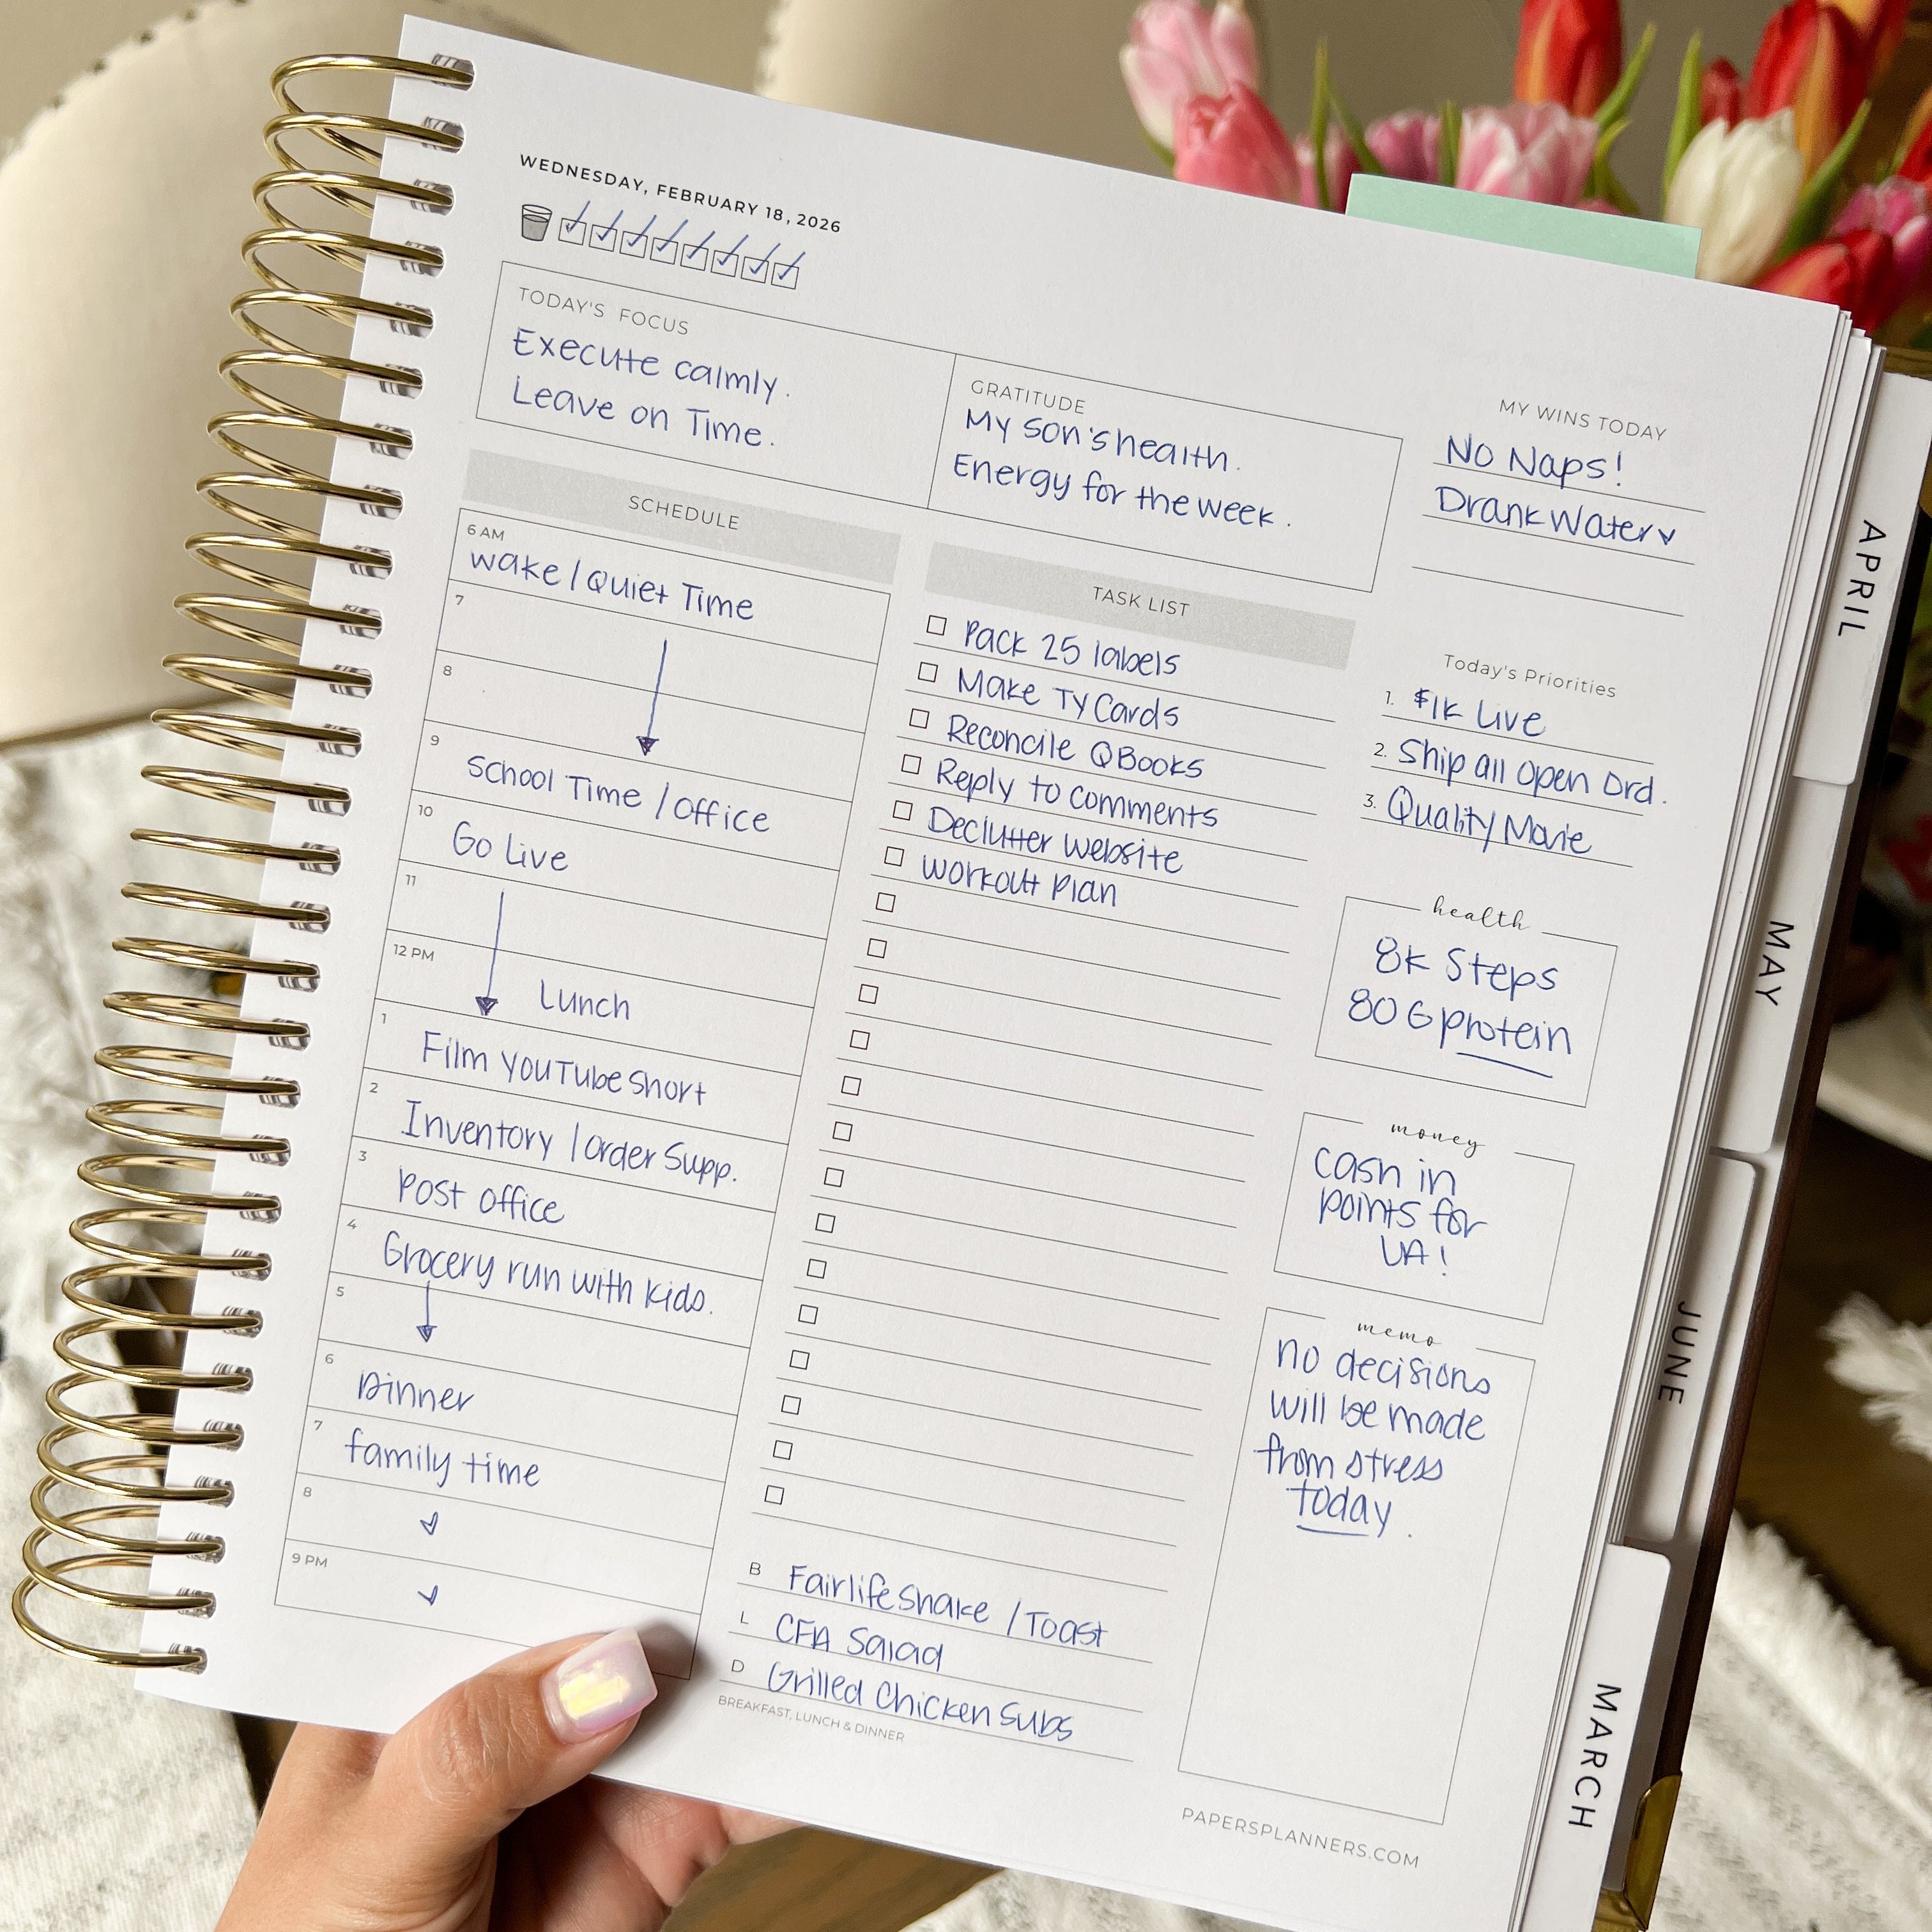 WEDNESDAY, FEBRUARY 18, 2026
TODAY'S FOCUS
Execute calmly.
Leave on Time.
GRATITUDE
My son's health.
Energy for the week.
MY WINS TODAY
No Naps!
Drank Water
SCHEDULE
6 AM
wake / Quiet Time
7
8
9
School Time / Office
10
Go Live
11
12 PM
Lunch
1
Film YouTube Short
2
Inventory / order Supp.
3
Post Office
4
Grocery run with kids.
5
6
Dinner
7
family time
8
9 PM
TASK LIST
Pack 25 labels
Make TY Cards
Reconcile QBooks
Reply to comments
Declutter Website
Workout Plan
B Fairlife Shake / Toast
L CFA Salad
D Grilled Chicken Subs
BREAKFAST, LUNCH & DINNER
Today's Priorities
1. $1k Live
2. Ship all open Ord.
3. Quality Movie
health
8k Steps
80 G protein
money
cash in
points for
UA!
memo
no decisions
will be made
from stress
today.
PAPERSPLANNERS.COM
APRIL
MAY
JUNE
MARCH